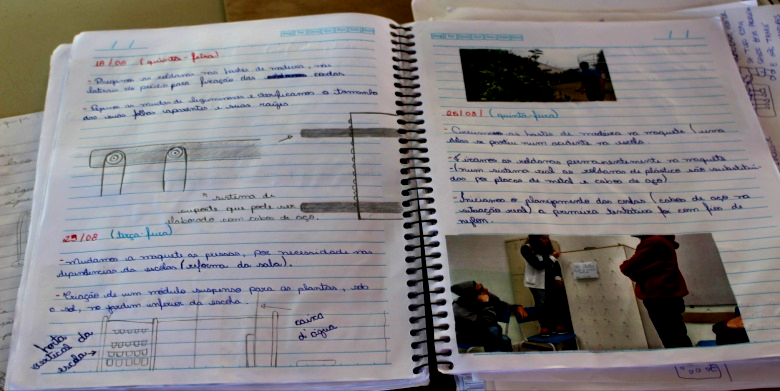 18/08 (quinta-feira)
- as roldanas nas hastes de madeira, nas
laterais do prédio para fixação das cordas
- as mudas de leguminosas e verificamos o tamanho
das suas folhas aparentes e suas raízes
* sistema de
suporte que pode ser
elaborado com cabos de aço.
23/08 (terça-feira)
- Mudamos a maquete as pressas, por necessidade nas
dependências da escola (reforma da sala).
- Criação de um módulo suspenso para as plantas, sob
o sol, no jardim inferior da escola.
horta
vertical da
escola
caixa
d'água
25/08/ (quinta-feira)
- as hastes de madeira na maquete (uma
delas se perdeu num acidente na escola
- Fixamos as roldanas permanentemente na maquete
(num sistema real as roldanas de plástico são substituí
das por placas de metal e cabos de aço)
- Iniciamos o planejamento das cordas (cabos de aço na
situação real) a primeira tentativa foi com fios de
nylon.